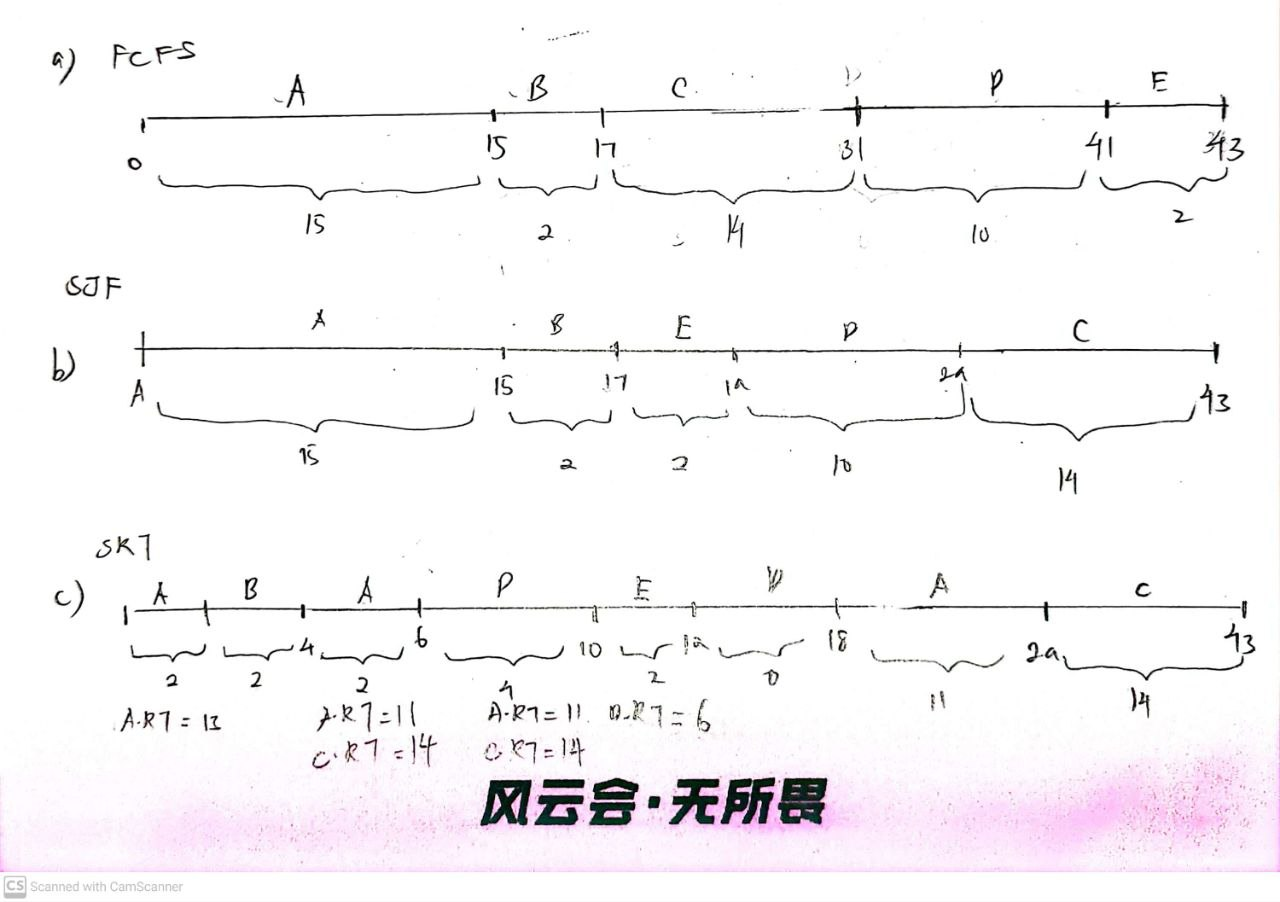 a) FCFS
A B C D E
0 15 17 31 41 43
15 2 14 10 2
SJF
b)
A B E D C
A 15 17 19 29 43
15 2 2 10 14
SRT
c)
A B A D E D A C
4 6 10 12 18 29 43
2 2 2 4 2 11 14
A.RT = 13 A.RT = 11 A.RT = 11 D.RT = 6
C.RT = 14 C.RT = 14
风云会·无所畏
CS Scanned with CamScanner